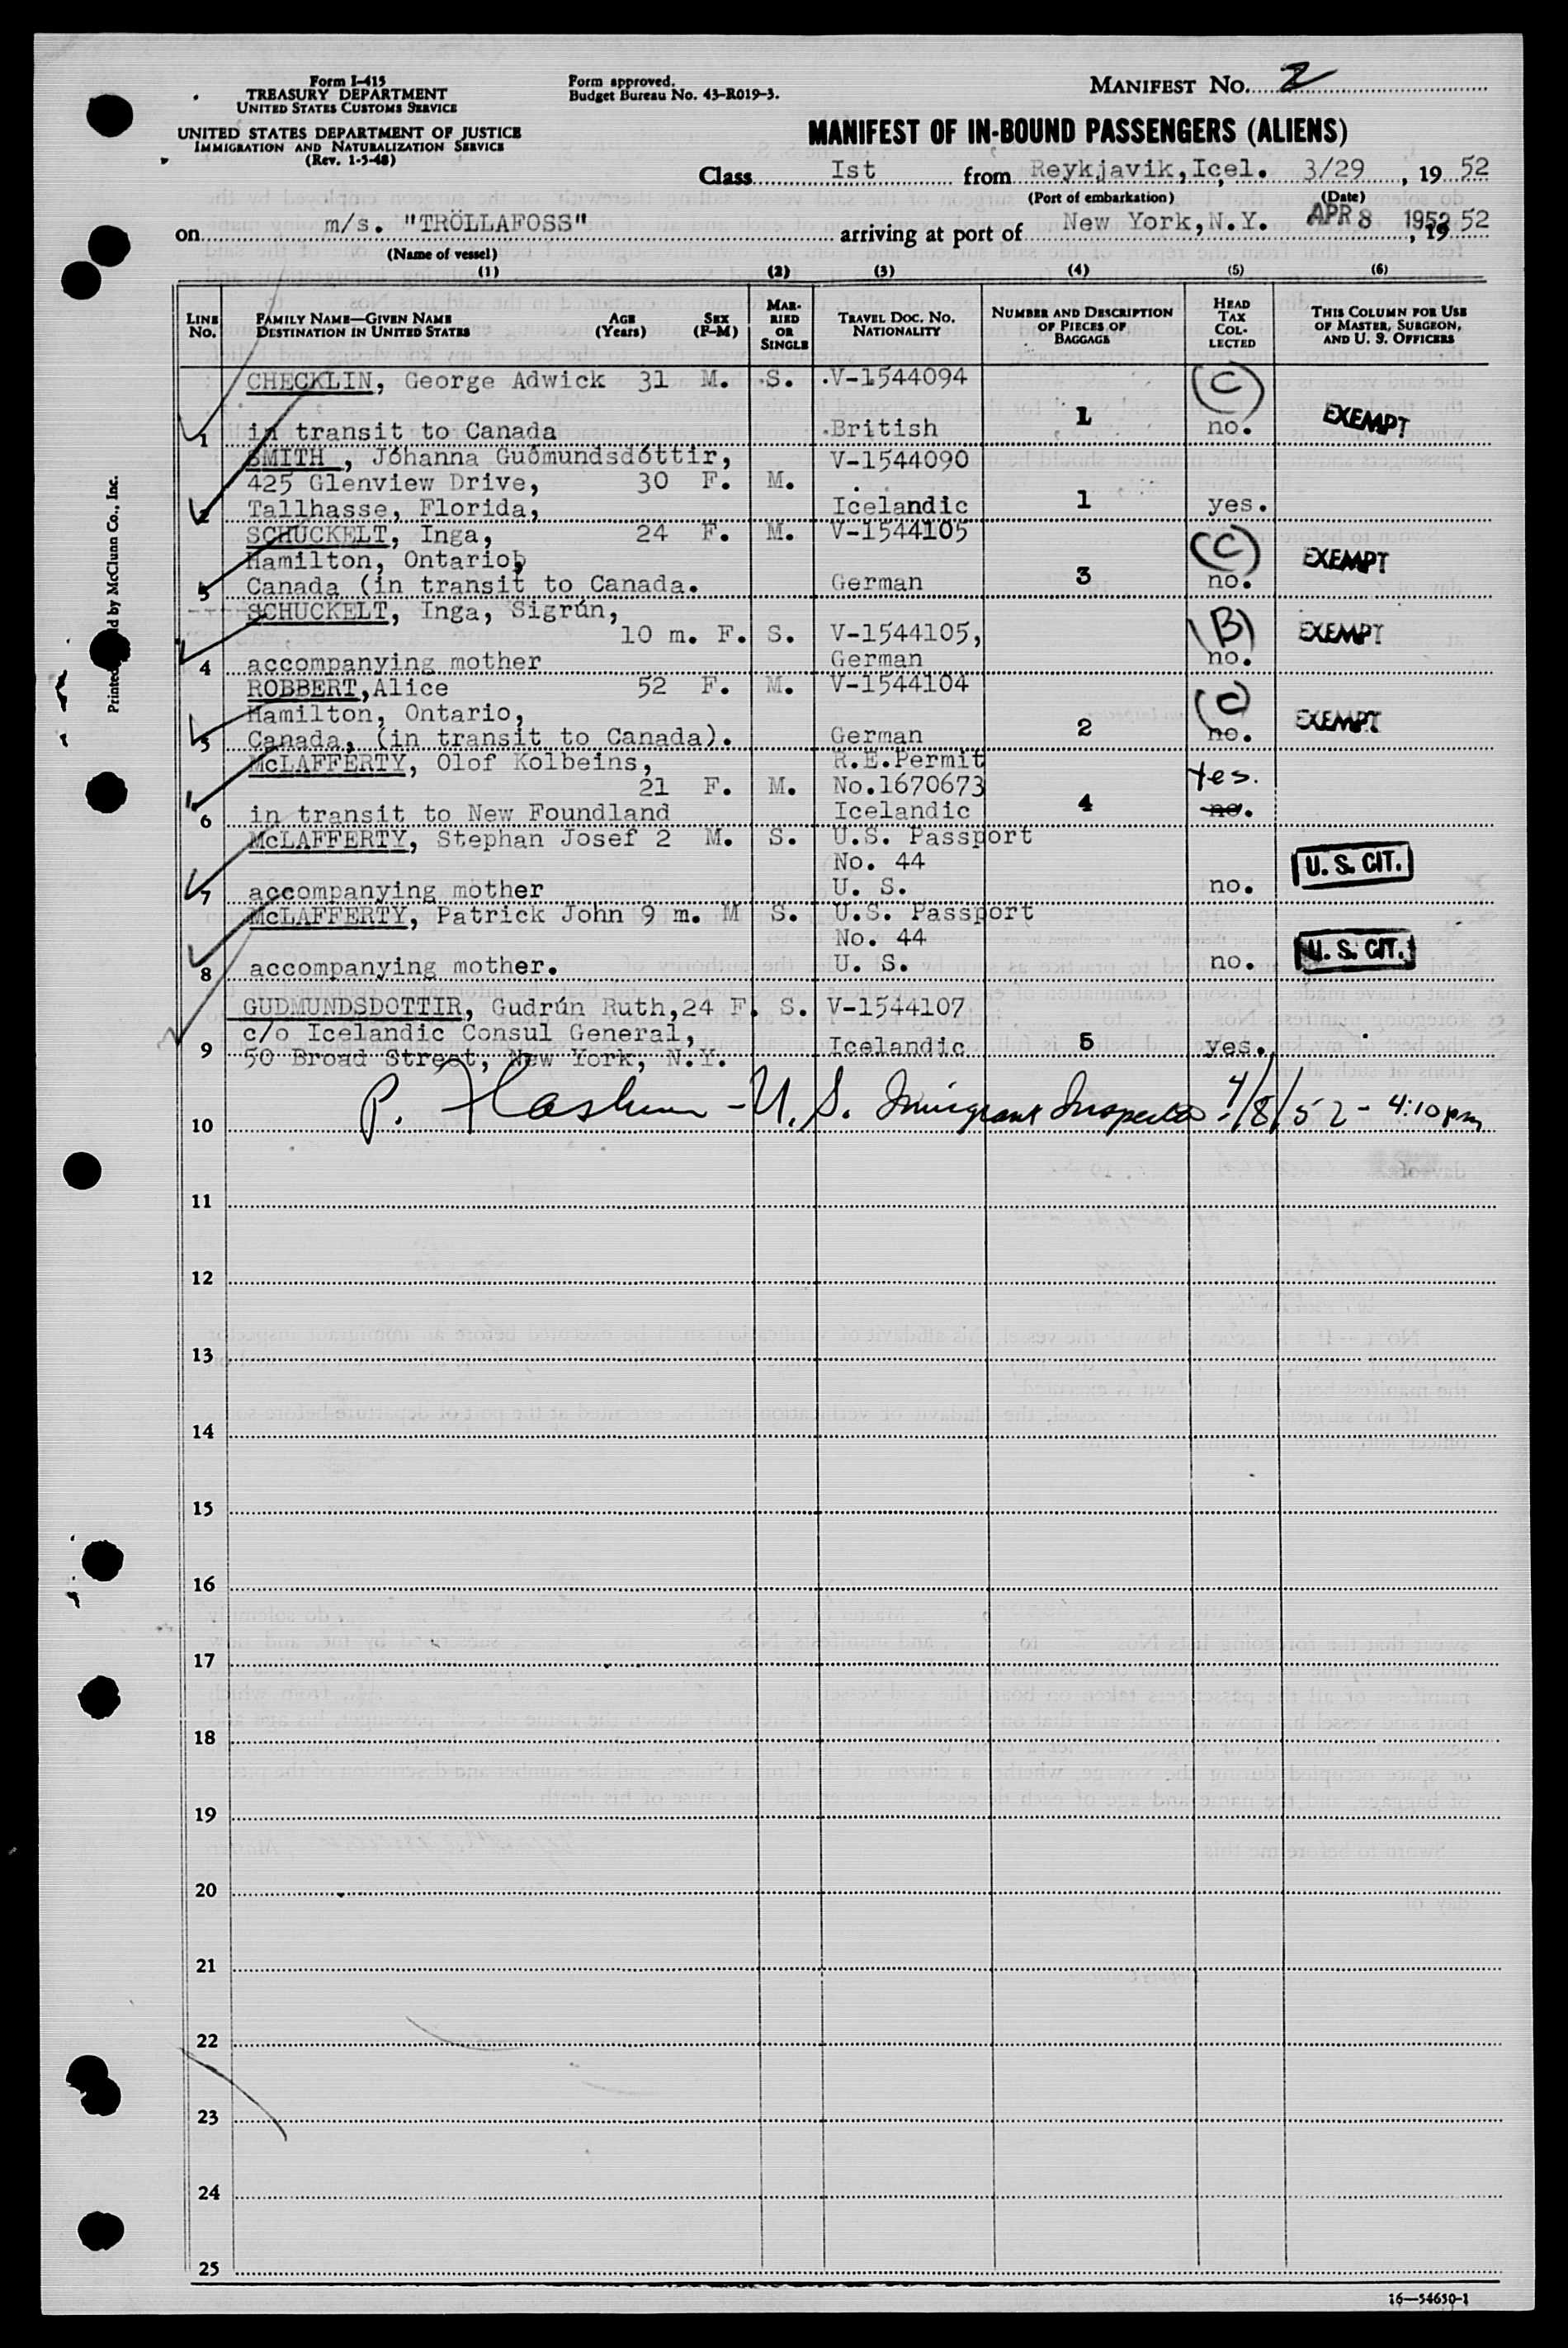 Form I-415
TREASURY DEPARTMENT
UNITED STATES CUSTOMS SERVICE
UNITED STATES DEPARTMENT OF JUSTICE
IMMIGRATION AND NATURALIZATION SERVICE
(Rev. 1-5-48)
Form approved.
Budget Bureau No. 43-R019-3.
MANIFEST NO. 2
MANIFEST OF IN-BOUND PASSENGERS (ALIENS)
Class Ist from Reykjavik, Icel. 3/29, 19 52
(Port of embarkation) (Date)
on m/s. "TRÖLLAFOSS" arriving at port of New York, N.Y. APR 8 1952, 19 52
(Name of vessel)
(1) (2) (3) (4) (5) (6)
LINE No. FAMILY NAME—GIVEN NAME DESTINATION IN UNITED STATES AGE (Years) SEX (F-M) MARRIED OR SINGLE TRAVEL DOC. NO. NATIONALITY NUMBER AND DESCRIPTION OF PIECES OF BAGGAGE HEAD TAX COLLECTED THIS COLUMN FOR USE OF MASTER, SURGEON, AND U. S. OFFICERS
CHECKLIN, George Adwick 31 M. S. V-1544094 (C)
1 in transit to Canada British 1 no. EXEMPT
SMITH , Jóhanna Guðmundsdóttir, V-1544090
425 Glenview Drive, 30 F. M.
2 Tallhasse, Florida, Icelandic 1 yes.
SCHUCKELT, Inga, 24 F. M. V-1544105 (C)
Hamilton, Ontario, EXEMPT
3 Canada (in transit to Canada. German 3 no.
SCHUCKELT, Inga, Sigrún,
10 m. F. S. V-1544105, (B) EXEMPT
4 accompanying mother German no.
ROBBERT, Alice 52 F. M. V-1544104 (C)
Hamilton, Ontario, EXEMPT
5 Canada, (in transit to Canada). German 2 no.
McLAFFERTY, Olof Kolbeins, R.E.Permit
21 F. M. No.1670673 Yes.
6 in transit to New Foundland Icelandic 4 no.
McLAFFERTY, Stephan Josef 2 M. S. U.S. Passport
No. 44 U. S. CIT.
7 accompanying mother U. S. no.
McLAFFERTY, Patrick John 9 m. M S. U.S. Passport
No. 44 U. S. CIT.
8 accompanying mother. U. S. no.
GUDMUNDSDOTTIR, Gudrún Ruth, 24 F. S. V-1544107
c/o Icelandic Consul General,
9 50 Broad Street, New York, N.Y. Icelandic 5 yes.
P. - U. S. Immigrant Inspector 4/8/52 - 4:10 pm
10
11
12
13
14
15
16
17
18
19
20
21
22
23
24
25
16—54650-1